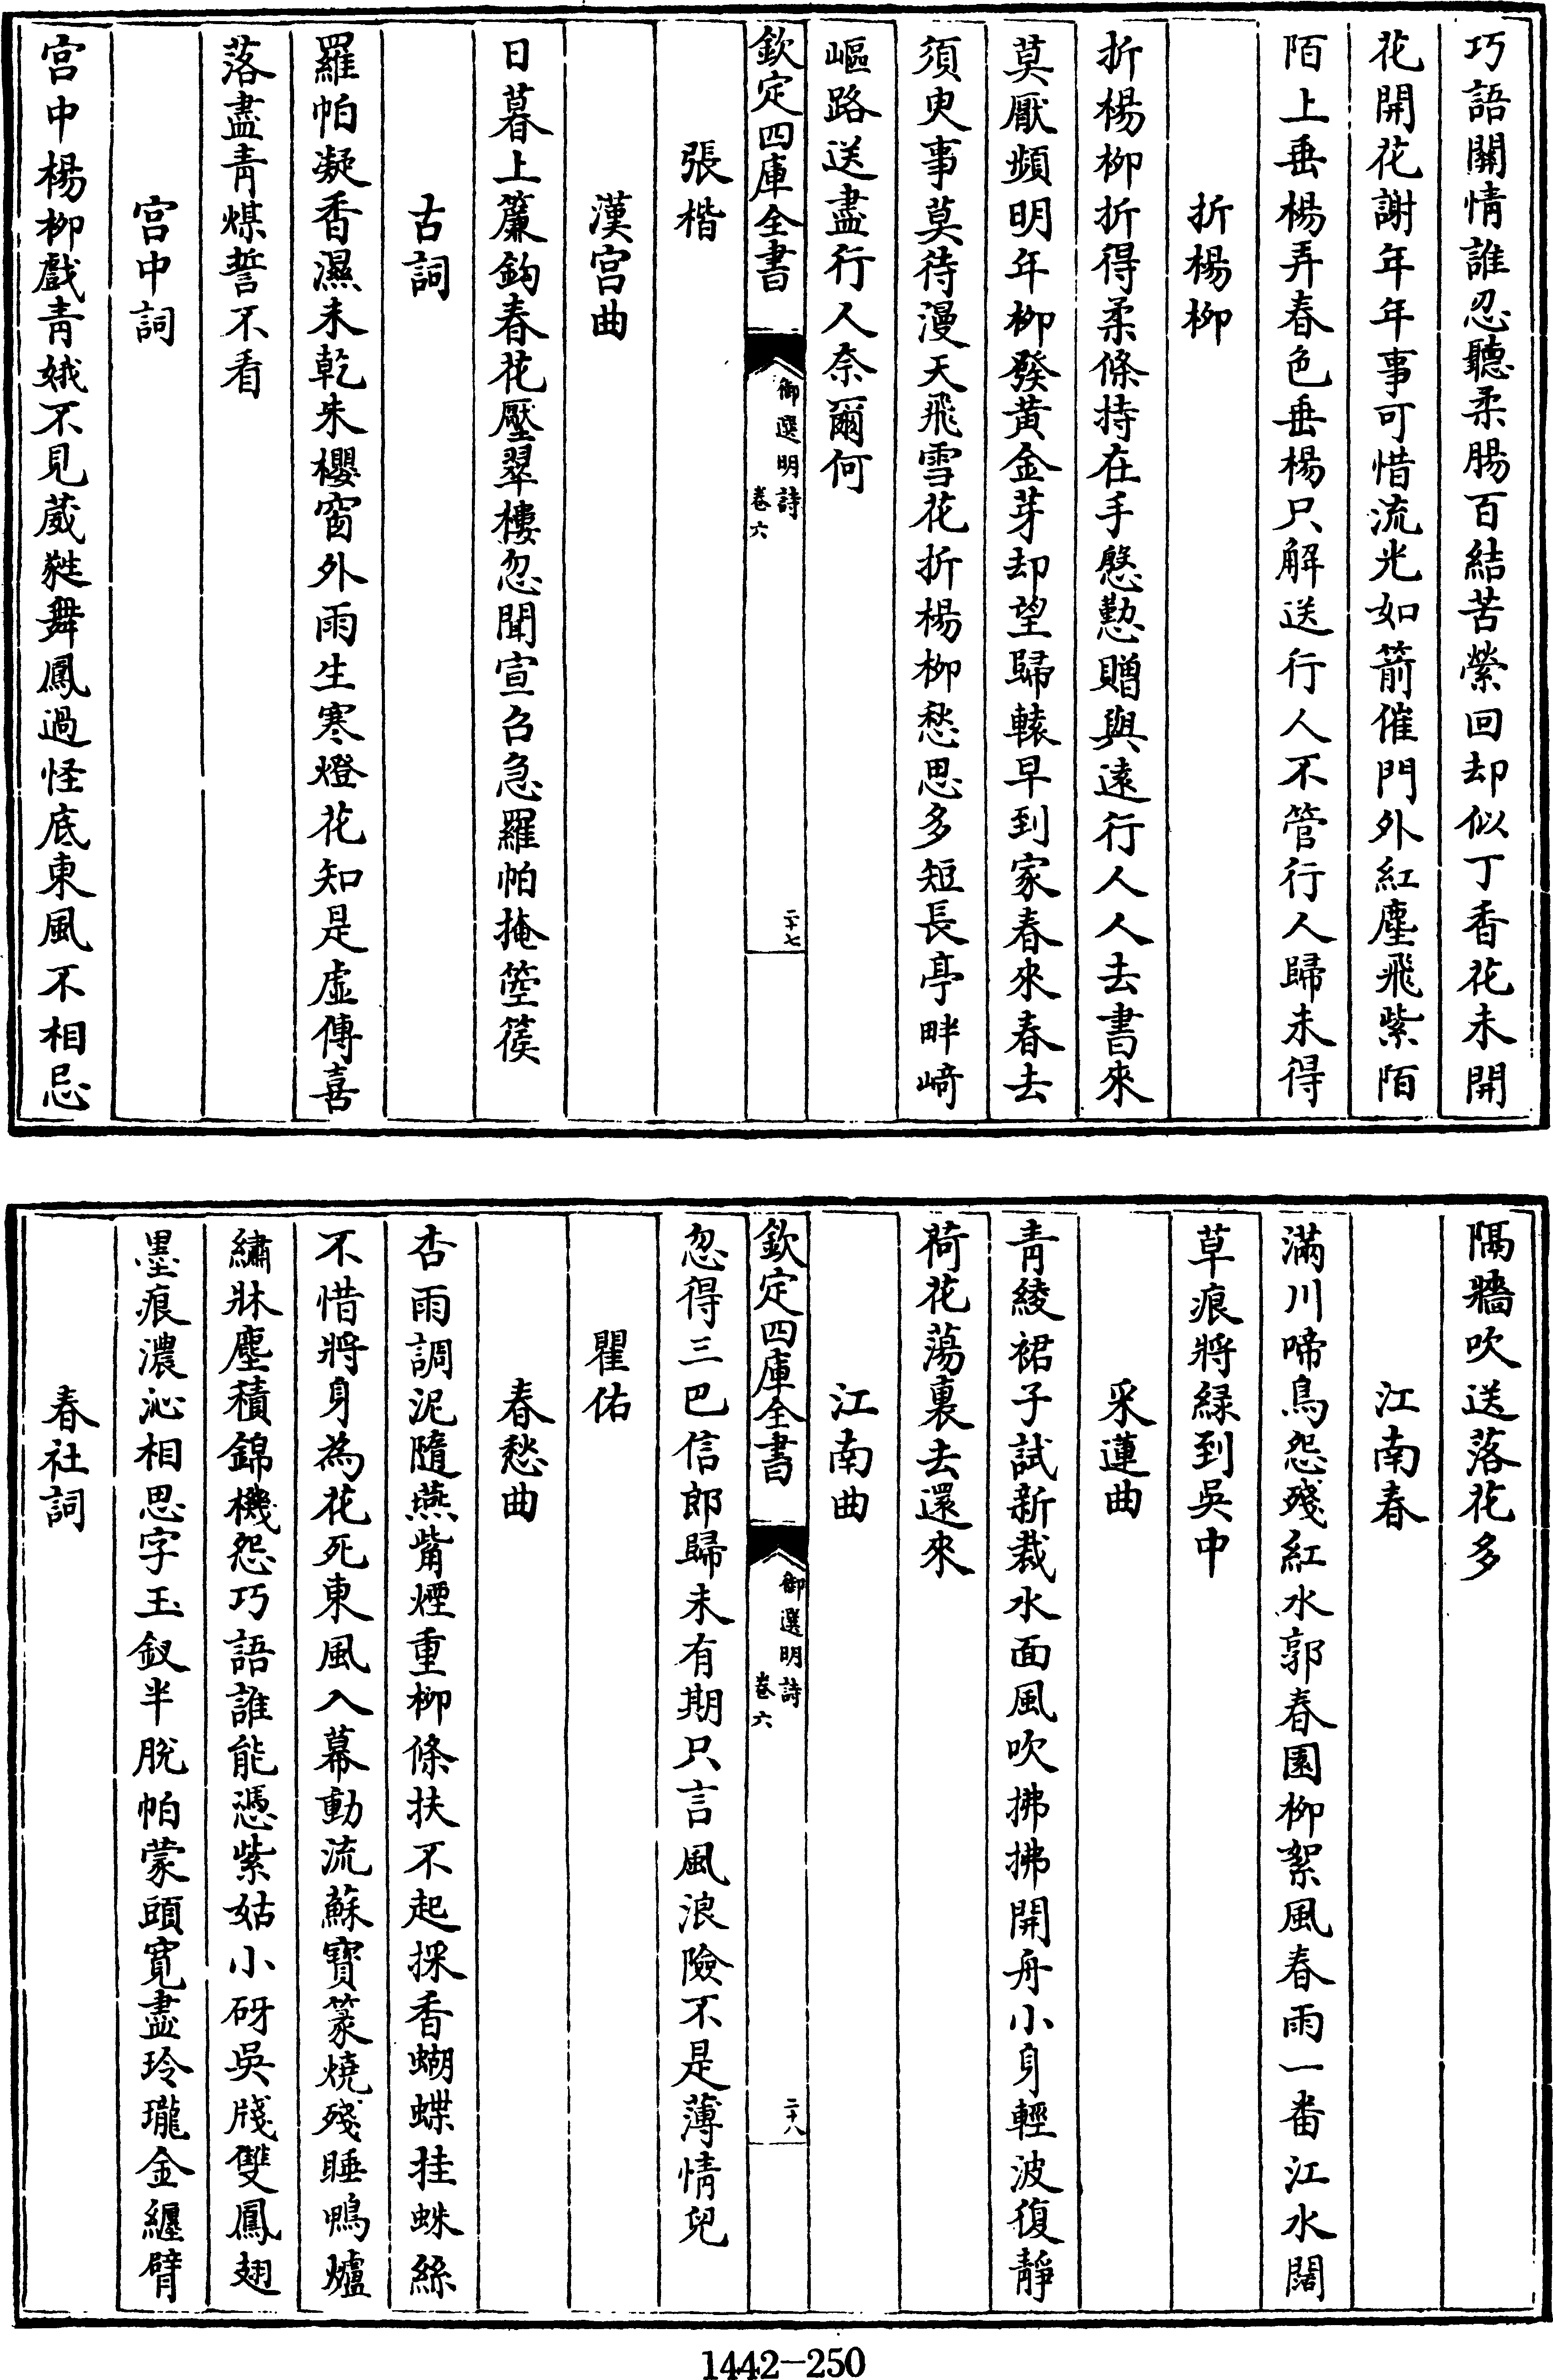 巧語關情誰忍聽柔腸百結苦縈回却似丁香花未開
花開花謝年年事可惜流光如箭催門外紅塵飛紫陌
陌上垂楊弄春色垂楊只解送行人不管行人歸未得
折楊柳
折楊柳折得柔條持在手慇懃贈與遠行人人去書來
莫厭頻明年柳發黃金芽却望歸轅早到家春來春去
須臾事莫待漫天飛雪花折楊柳愁思多短長亭畔崎
嶇路送盡行人奈爾何
欽定四庫全書
御選明詩
卷六
二十七
張楷
漢宮曲
日暮上簾鉤春花壓翠樓忽聞宣召急羅帕掩箜篌
古詞
羅帕凝香濕未乾朱櫻窗外雨生寒燈花知是虛傳喜
落盡青煤誓不看
宮中詞
宮中楊柳戲青娥不見葳蕤舞鳳過怪底東風不相忌
隔牆吹送落花多
江南春
滿川啼鳥怨殘紅水郭春園柳絮風春雨一番江水闊
草痕將緑到吳中
采蓮曲
青綾裙子試新裁水面風吹拂拂開舟小身輕波復靜
荷花蕩裏去還來
江南曲
欽定四庫全書
御選明詩
卷六
二十八
忽得三巴信郎歸未有期只言風浪險不是薄情兒
瞿佑
春愁曲
杏雨調泥隨燕觜煙重柳條扶不起採香蝴蝶挂蛛絲
不惜將身為花死東風入幕動流蘇寶篆燒殘睡鴨爐
繡牀塵積錦機怨巧語誰能憑紫姑小砑吳牋雙鳳翅
墨痕濃沁相思字玉釵半脫帕蒙頭寬盡玲瓏金纏臂
春社詞
1442-250